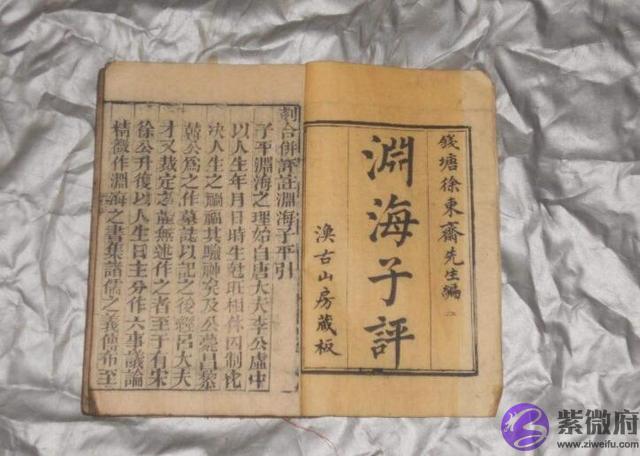 錢塘徐東齋先生編
淵海子評
漁古山房藏板
刻合併評註淵海子平引
子平淵海之理始自唐大夫李公虛中
以人生年月日時生尅旺相休囚制化
決人生之禍福其驗神矣及公薨昌黎
韓公爲之作墓誌以記之後經呂大夫
才又裁定之並無述作之者至于有宋
徐公升復以人生日主分作六事議論
精微作淵海之書集諸儒之義傳布至
紫微府
www.ziweifu.com